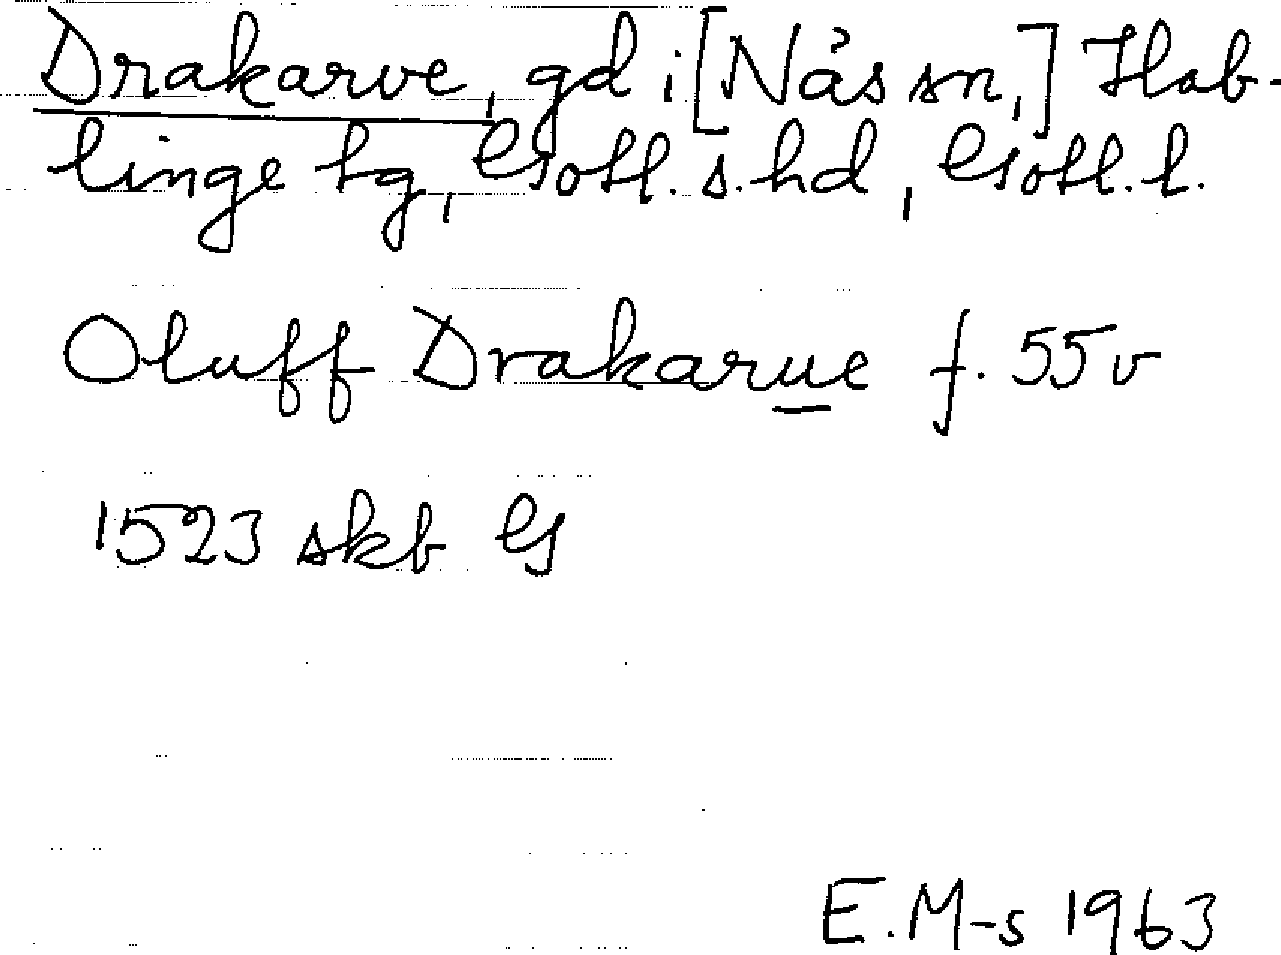 Drakarve, gd i [Näs sn,] Hab-
linge tg, Gotl. s. hd, Gotl. l.
Oluff Drakarue f. 55 v
1523 skb G
E. M-s 1963